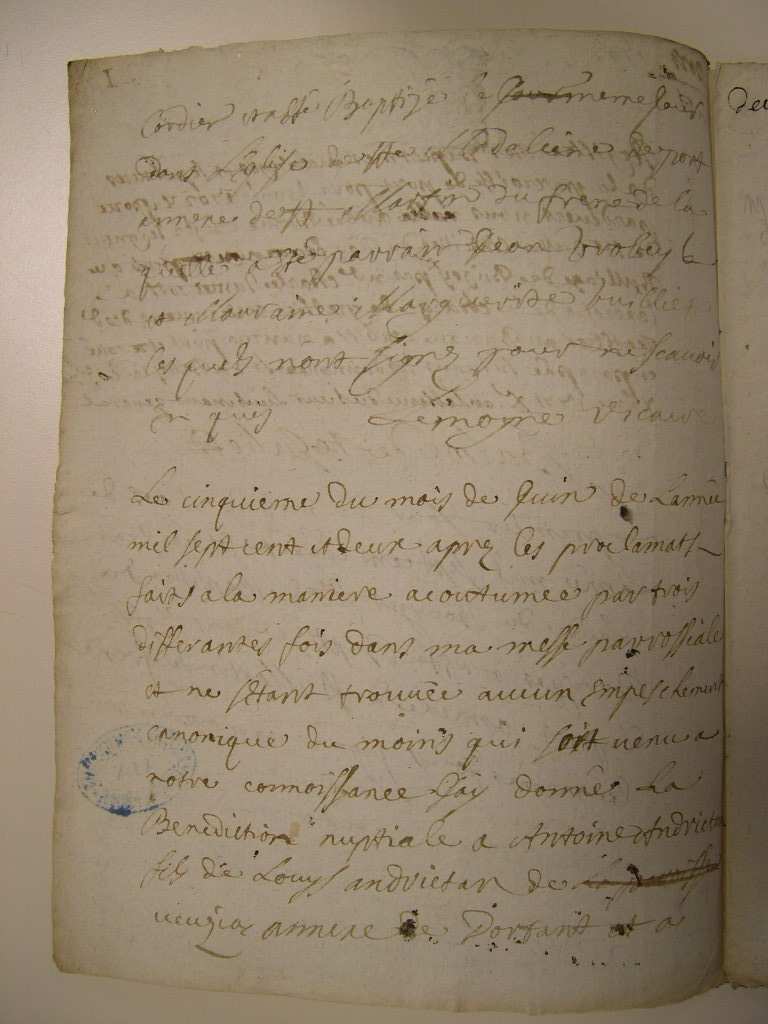 1
Cordier et a esté Baptizé le jour meme jour
dans L'eglise de Ste Madeleine de port
annexe de St Martin du frene de la
quelle a été parrain Jean
et Marraine Marguerite
les quels n'ont signez pour ne scavoir
Lemoyne Vicaire
Le cinquieme du mois de Juin de Lannée
mil sept cent et deux aprez les proclamats
faits a la maniere acoutumée par trois
differantes fois dans ma messe parrossiale
et ne s'étant trouvée aucun Empeschement
canonique du moins qui soit venu a
notre connoissance J'ay donnés La
Benediction nuptiale a Antoine Andrietan
fils de Louys andrietan de
annexe de Dortant et a
Deu